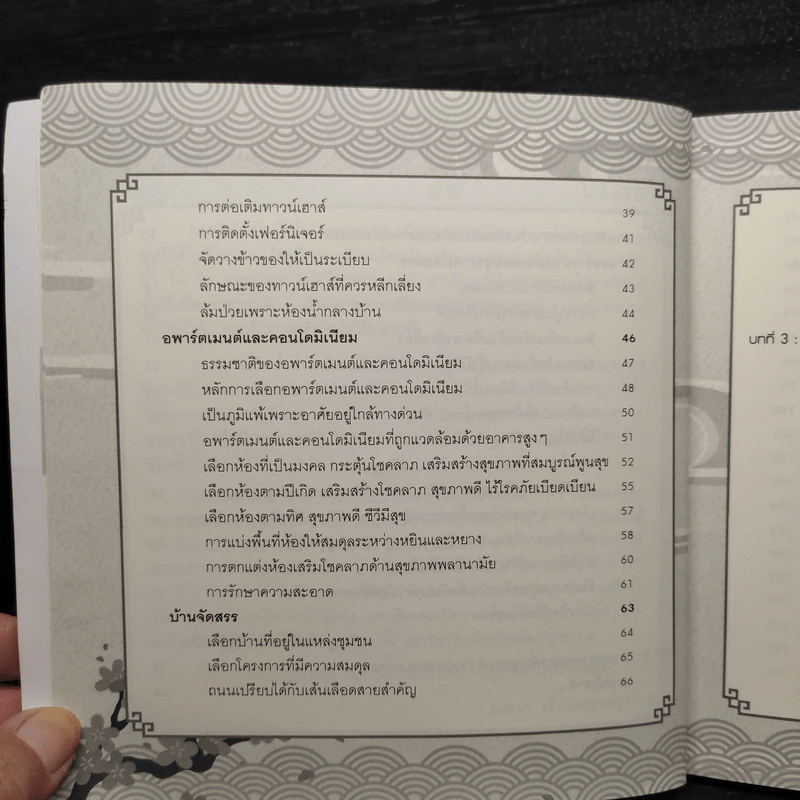 การต่อเติมทาวน์เฮาส์ 39
การติดตั้งเฟอร์นิเจอร์ 41
จัดวางข้าวของให้เป็นระเบียบ 42
ลักษณะของทาวน์เฮาส์ที่ควรหลีกเลี่ยง 43
ล้มป่วยเพราะห้องน้ำกลางบ้าน 44
อพาร์ตเมนต์และคอนโดมิเนียม 46
ธรรมชาติของอพาร์ตเมนต์และคอนโดมิเนียม 47
หลักการเลือกอพาร์ตเมนต์และคอนโดมิเนียม 48
เป็นภูมิแพ้เพราะอาศัยอยู่ใกล้ทางด่วน 50
อพาร์ตเมนต์และคอนโดมิเนียมที่ถูกแวดล้อมด้วยอาคารสูงๆ 51
เลือกห้องที่เป็นมงคล กระตุ้นโชคลาภ เสริมสร้างสุขภาพที่สมบูรณ์พูนสุข 52
เลือกห้องตามปีเกิด เสริมสร้างโชคลาภ สุขภาพดี ไร้โรคภัยเบียดเบียน 55
เลือกห้องตามทิศ สุขภาพดี ชีวีมีสุข 57
การแบ่งพื้นที่ห้องให้สมดุลระหว่างหยินและหยาง 58
การตกแต่งห้องเสริมโชคลาภด้านสุขภาพพลานามัย 60
การรักษาความสะอาด 61
บ้านจัดสรร 63
เลือกบ้านที่อยู่ในแหล่งชุมชน 64
เลือกโครงการที่มีความสมดุล 65
ถนนเปรียบได้กับเส้นเลือดสายสำคัญ 66
บทที่ 3 :